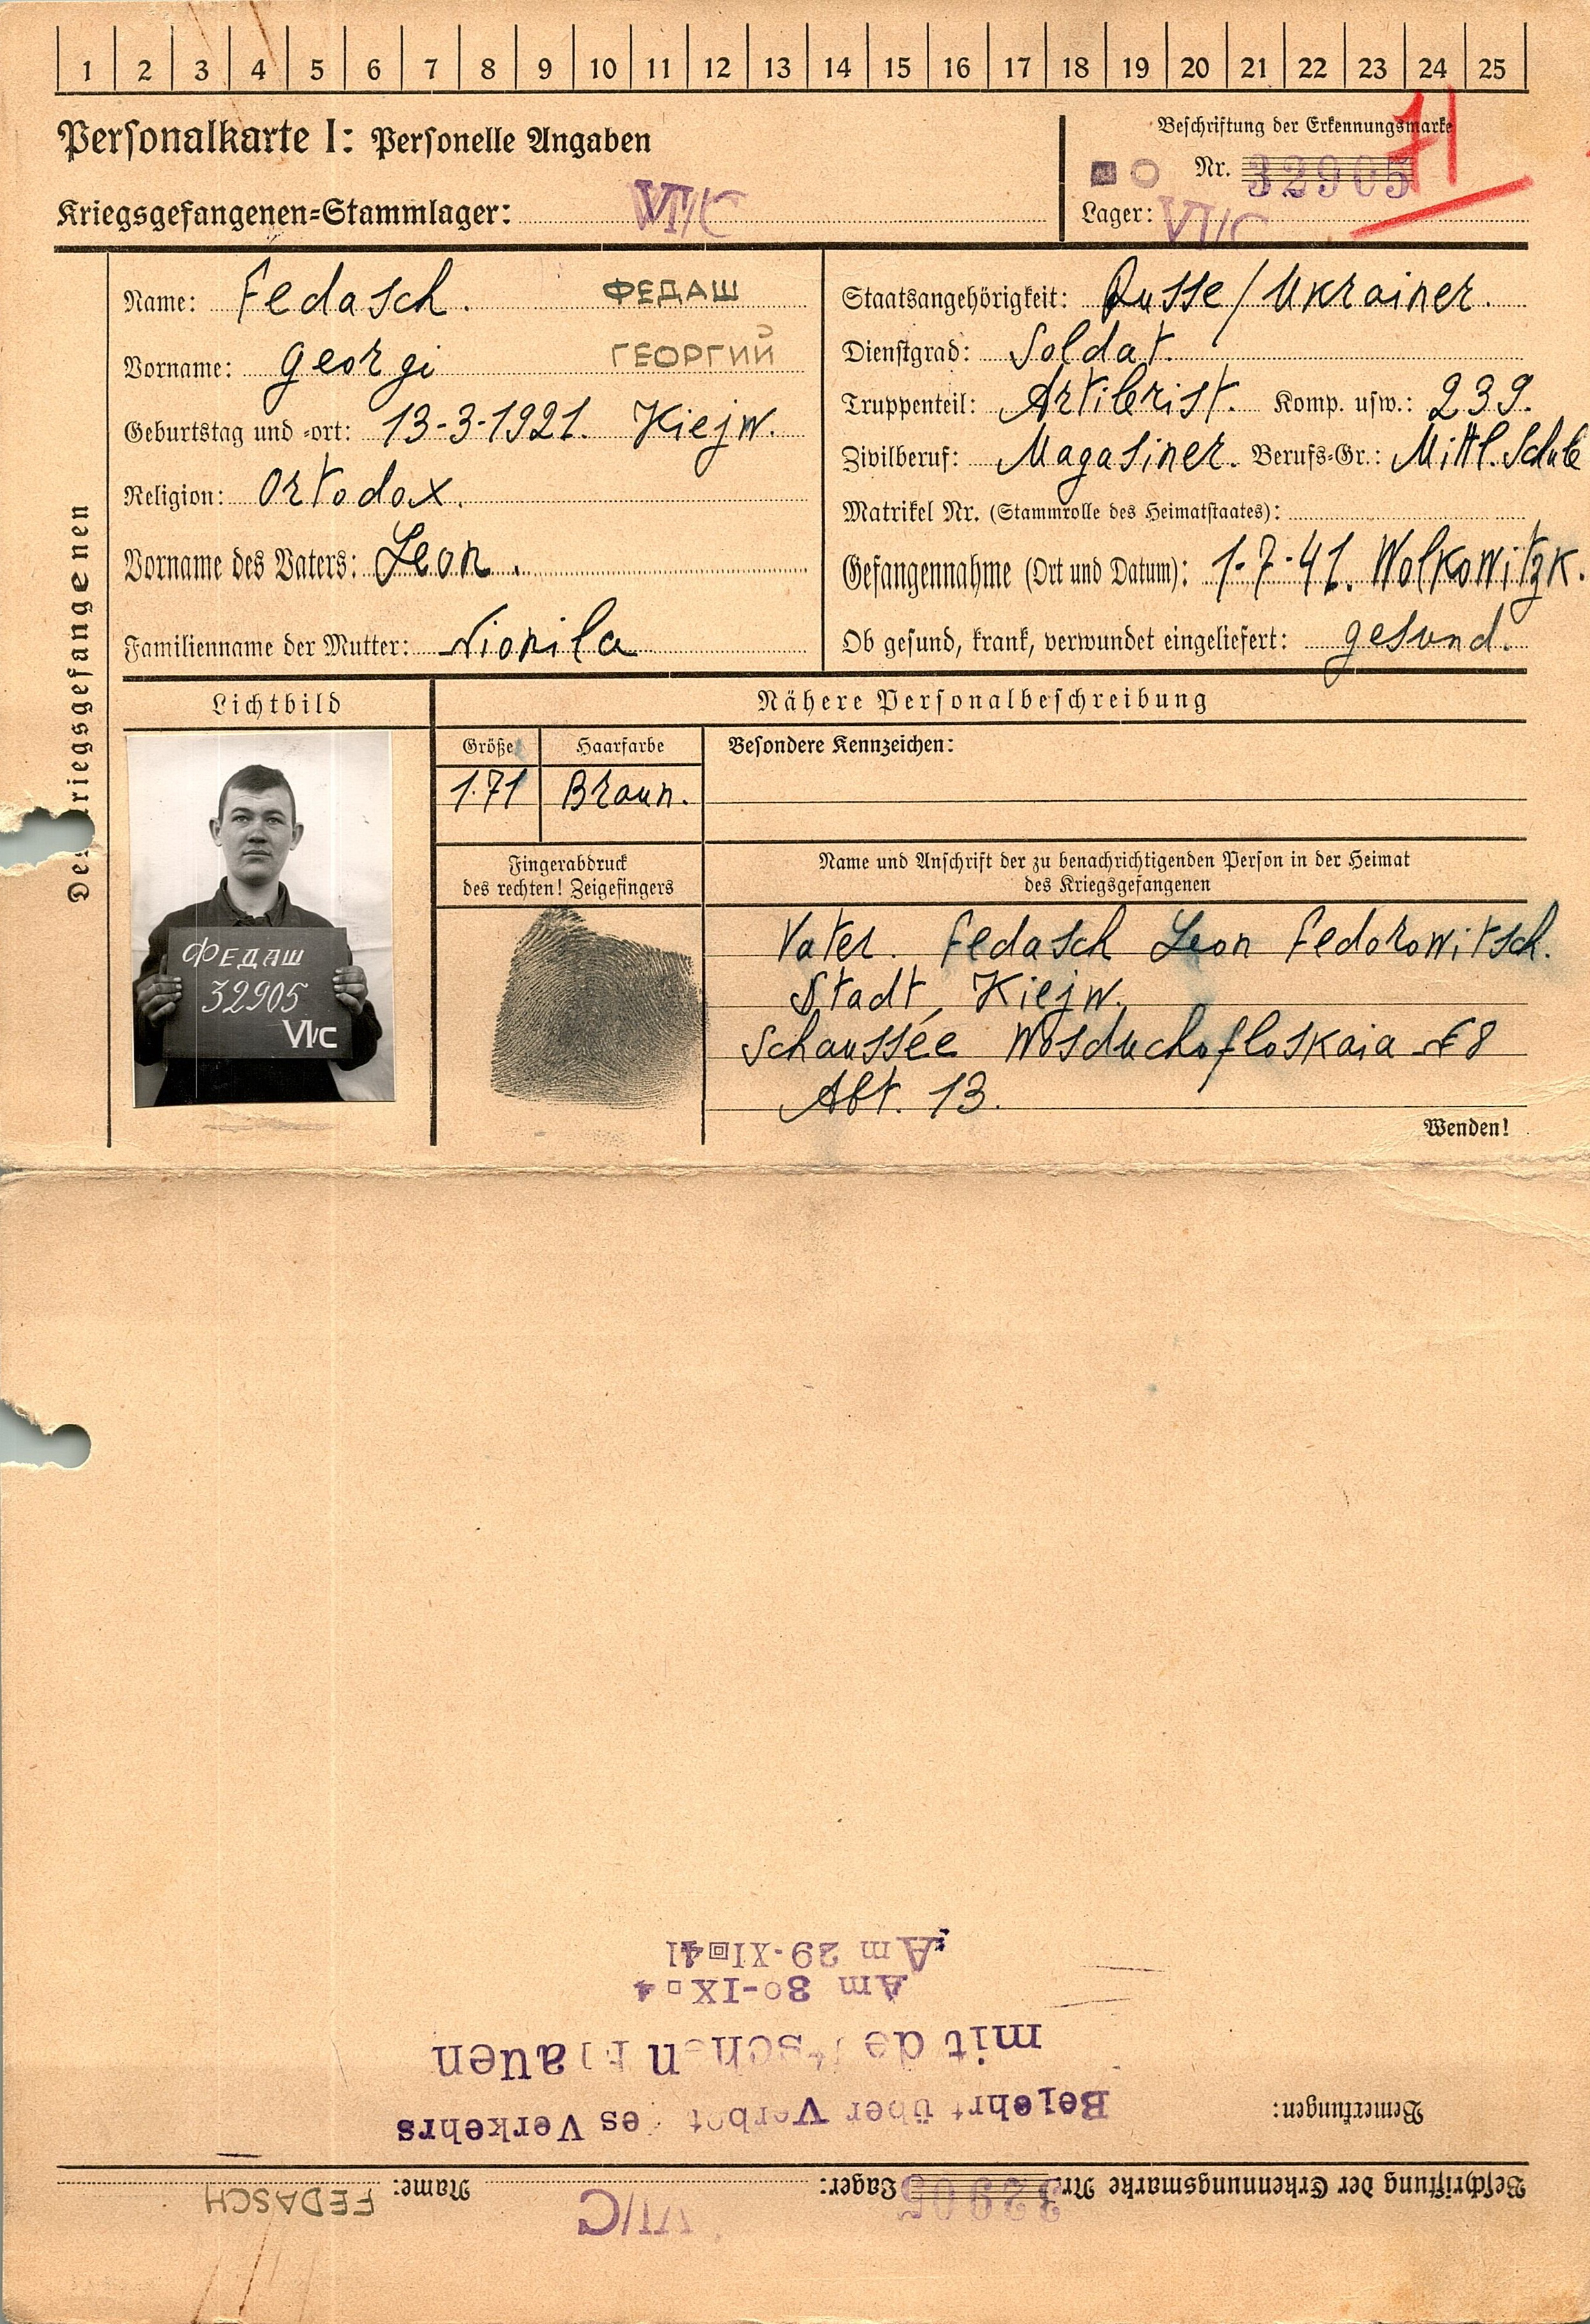 1 2 3 4 5 6 7 8 9 10 11 12 13 14 15 16 17 18 19 20 21 22 23 24 25
Personalkarte I: Personelle Angaben
Kriegsgefangenen-Stammlager: VI/C
Beschriftung der Erkennungsmarke
Nr. 32905
Lager: VI/C
Des Kriegsgefangenen
Name: Fedasch. ФЕДАШ
Vorname: Georgi ГЕОРГИЙ
Geburtstag und -ort: 13-3-1921. Kiejw.
Religion: Ortodox.
Vorname des Vaters: Leon.
Familienname der Mutter: Nionila
Staatsangehörigkeit: Russe/Ukrainer.
Dienstgrad: Soldat.
Truppenteil: Artilerist. Komp. usw.: 239.
Zivilberuf: Magasiner. Berufs-Gr.: Mittl. Schule
Matrikel Nr. (Stammrolle des Heimatstaates):
Gefangennahme (Ort und Datum): 1-7-41. Wolkowitzk.
Ob gesund, krank, verwundet eingeliefert: gesund.
Lichtbild
ФЕДАШ
32905
VI/C
Nähere Personalbeschreibung
Größe Haarfarbe Besondere Kennzeichen:
1.71 Braun.
Fingerabdruck
des rechten! Zeigefingers
Name und Anschrift der zu benachrichtigenden Person in der Heimat
des Kriegsgefangenen
Vater. Fedasch Leon Fedorowitsch.
Stadt, Kiejw.
Schaussée Wosduchofloskaia 8
Abt. 13.
Wenden!
Beschriftung der Erkennungsmarke Nr. 32905 Lager: VI/C Name: FEDASCH
Bemerkungen:
Belehrt über Verbot des Verkehrs
mit deutschen Frauen
Am 30-IX 4
Am 29-XI 41